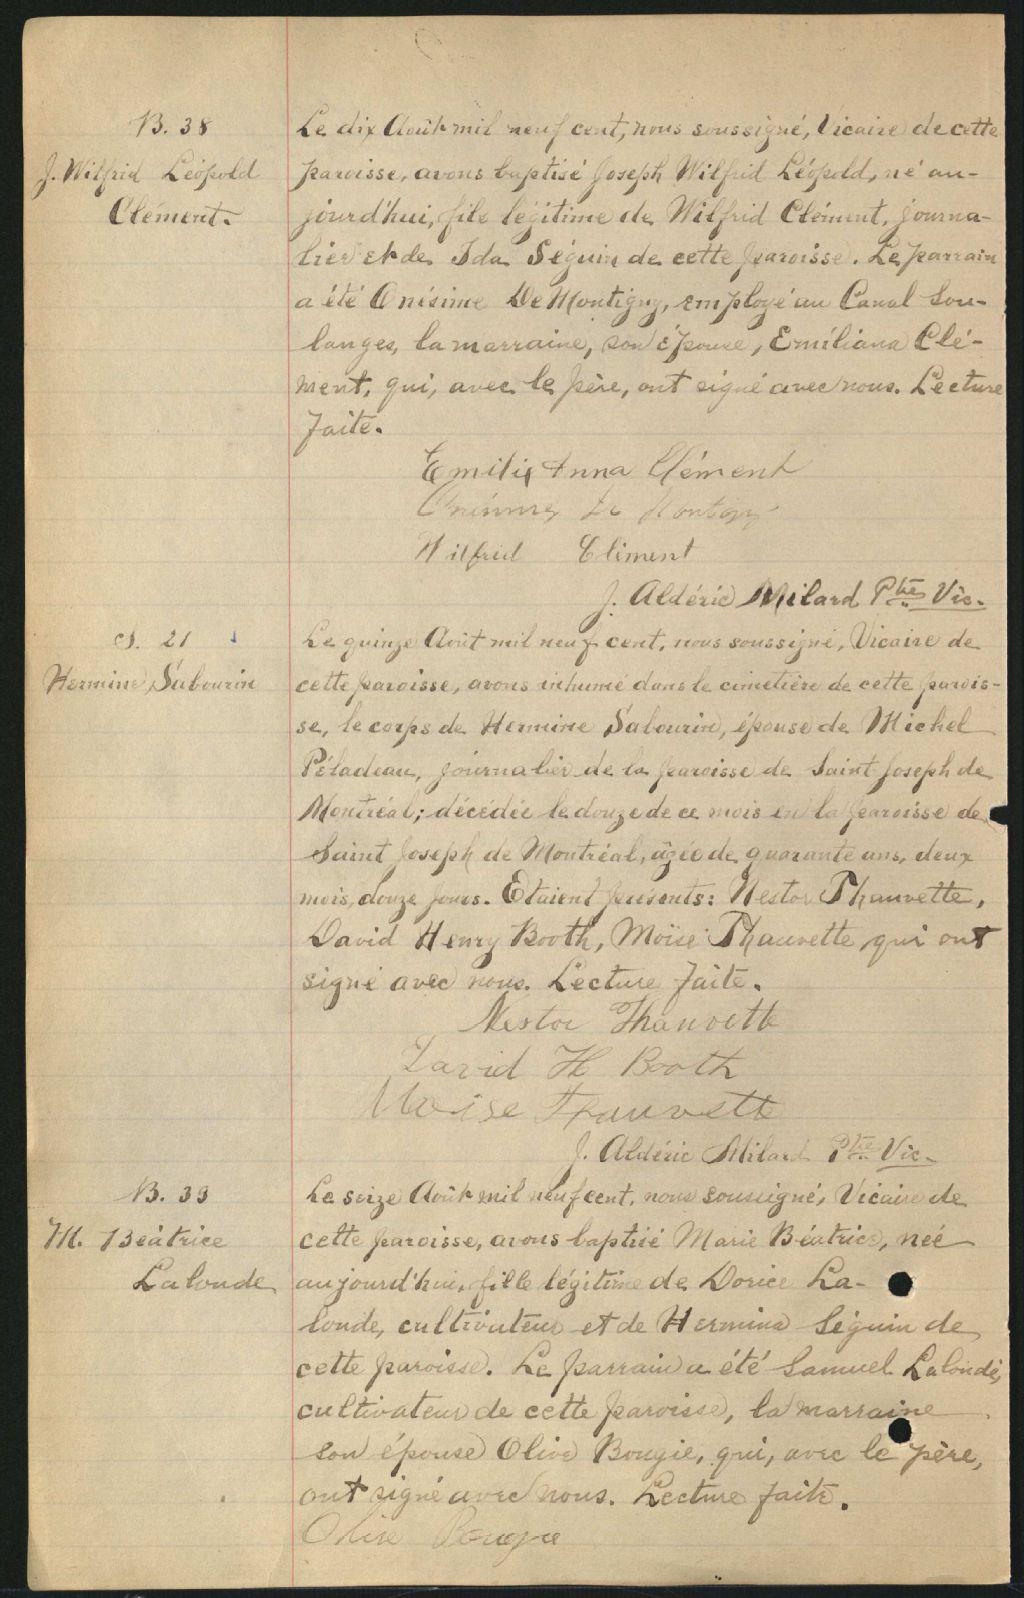 B. 38
J. Wilfrid Léopold
Clément.
Le dix Août mil neuf cent, nous soussigné, Vicaire de cette
paroisse, avons baptisé Joseph Wilfrid Léopold, né au-
jourd'hui, fils légitime de Wilfrid Clément, journa-
lier et de Ida Séguin de cette paroisse. Le parrain
a été Onésime De Montigny, employé au Canal Sou-
langes, la marraine, son épouse, Emiliana Clé-
ment, qui, avec le père, ont signé avec nous. Lecture
faite.
Emili Anna Clément
Onésime De Montigny
Wilfrid Clément
J. Aldéric Milard Ptre Vic.
S. 21
Hermine Sabourin
Le quinze Août mil neuf cent, nous soussigné, Vicaire de
cette paroisse, avons inhumé dans le cimetière de cette parois-
se, le corps de Hermine Sabourin, épouse de Michel
Péladeau, journalier de la paroisse de Saint Joseph de
Montréal; décédée le douze de ce mois en la paroisse de
Saint Joseph de Montréal, âgée de quarante ans, deux
mois, douze jours. Etaient présents: Nestor Thauvette,
David Henry Booth, Moïse Thauvette, qui ont
signé avec nous. Lecture faite.
Nestor Thauvette
David H Booth
Moise Thauvette
J. Aldéric Milard Ptre Vic.
B. 39
M. Béatrice
Lalonde
Le seize Août mil neuf cent, nous soussigné, Vicaire de
cette paroisse, avons baptisé Marie Béatrice, née
aujourd'hui, fille légitime de Dorice La-
londe, cultivateur et de Hermina Séguin de
cette paroisse. Le parrain a été Samuel Lalonde,
cultivateur de cette paroisse, la marraine
son épouse Olive Bougie, qui, avec le père,
ont signé avec nous. Lecture faite.
Olive Bougie